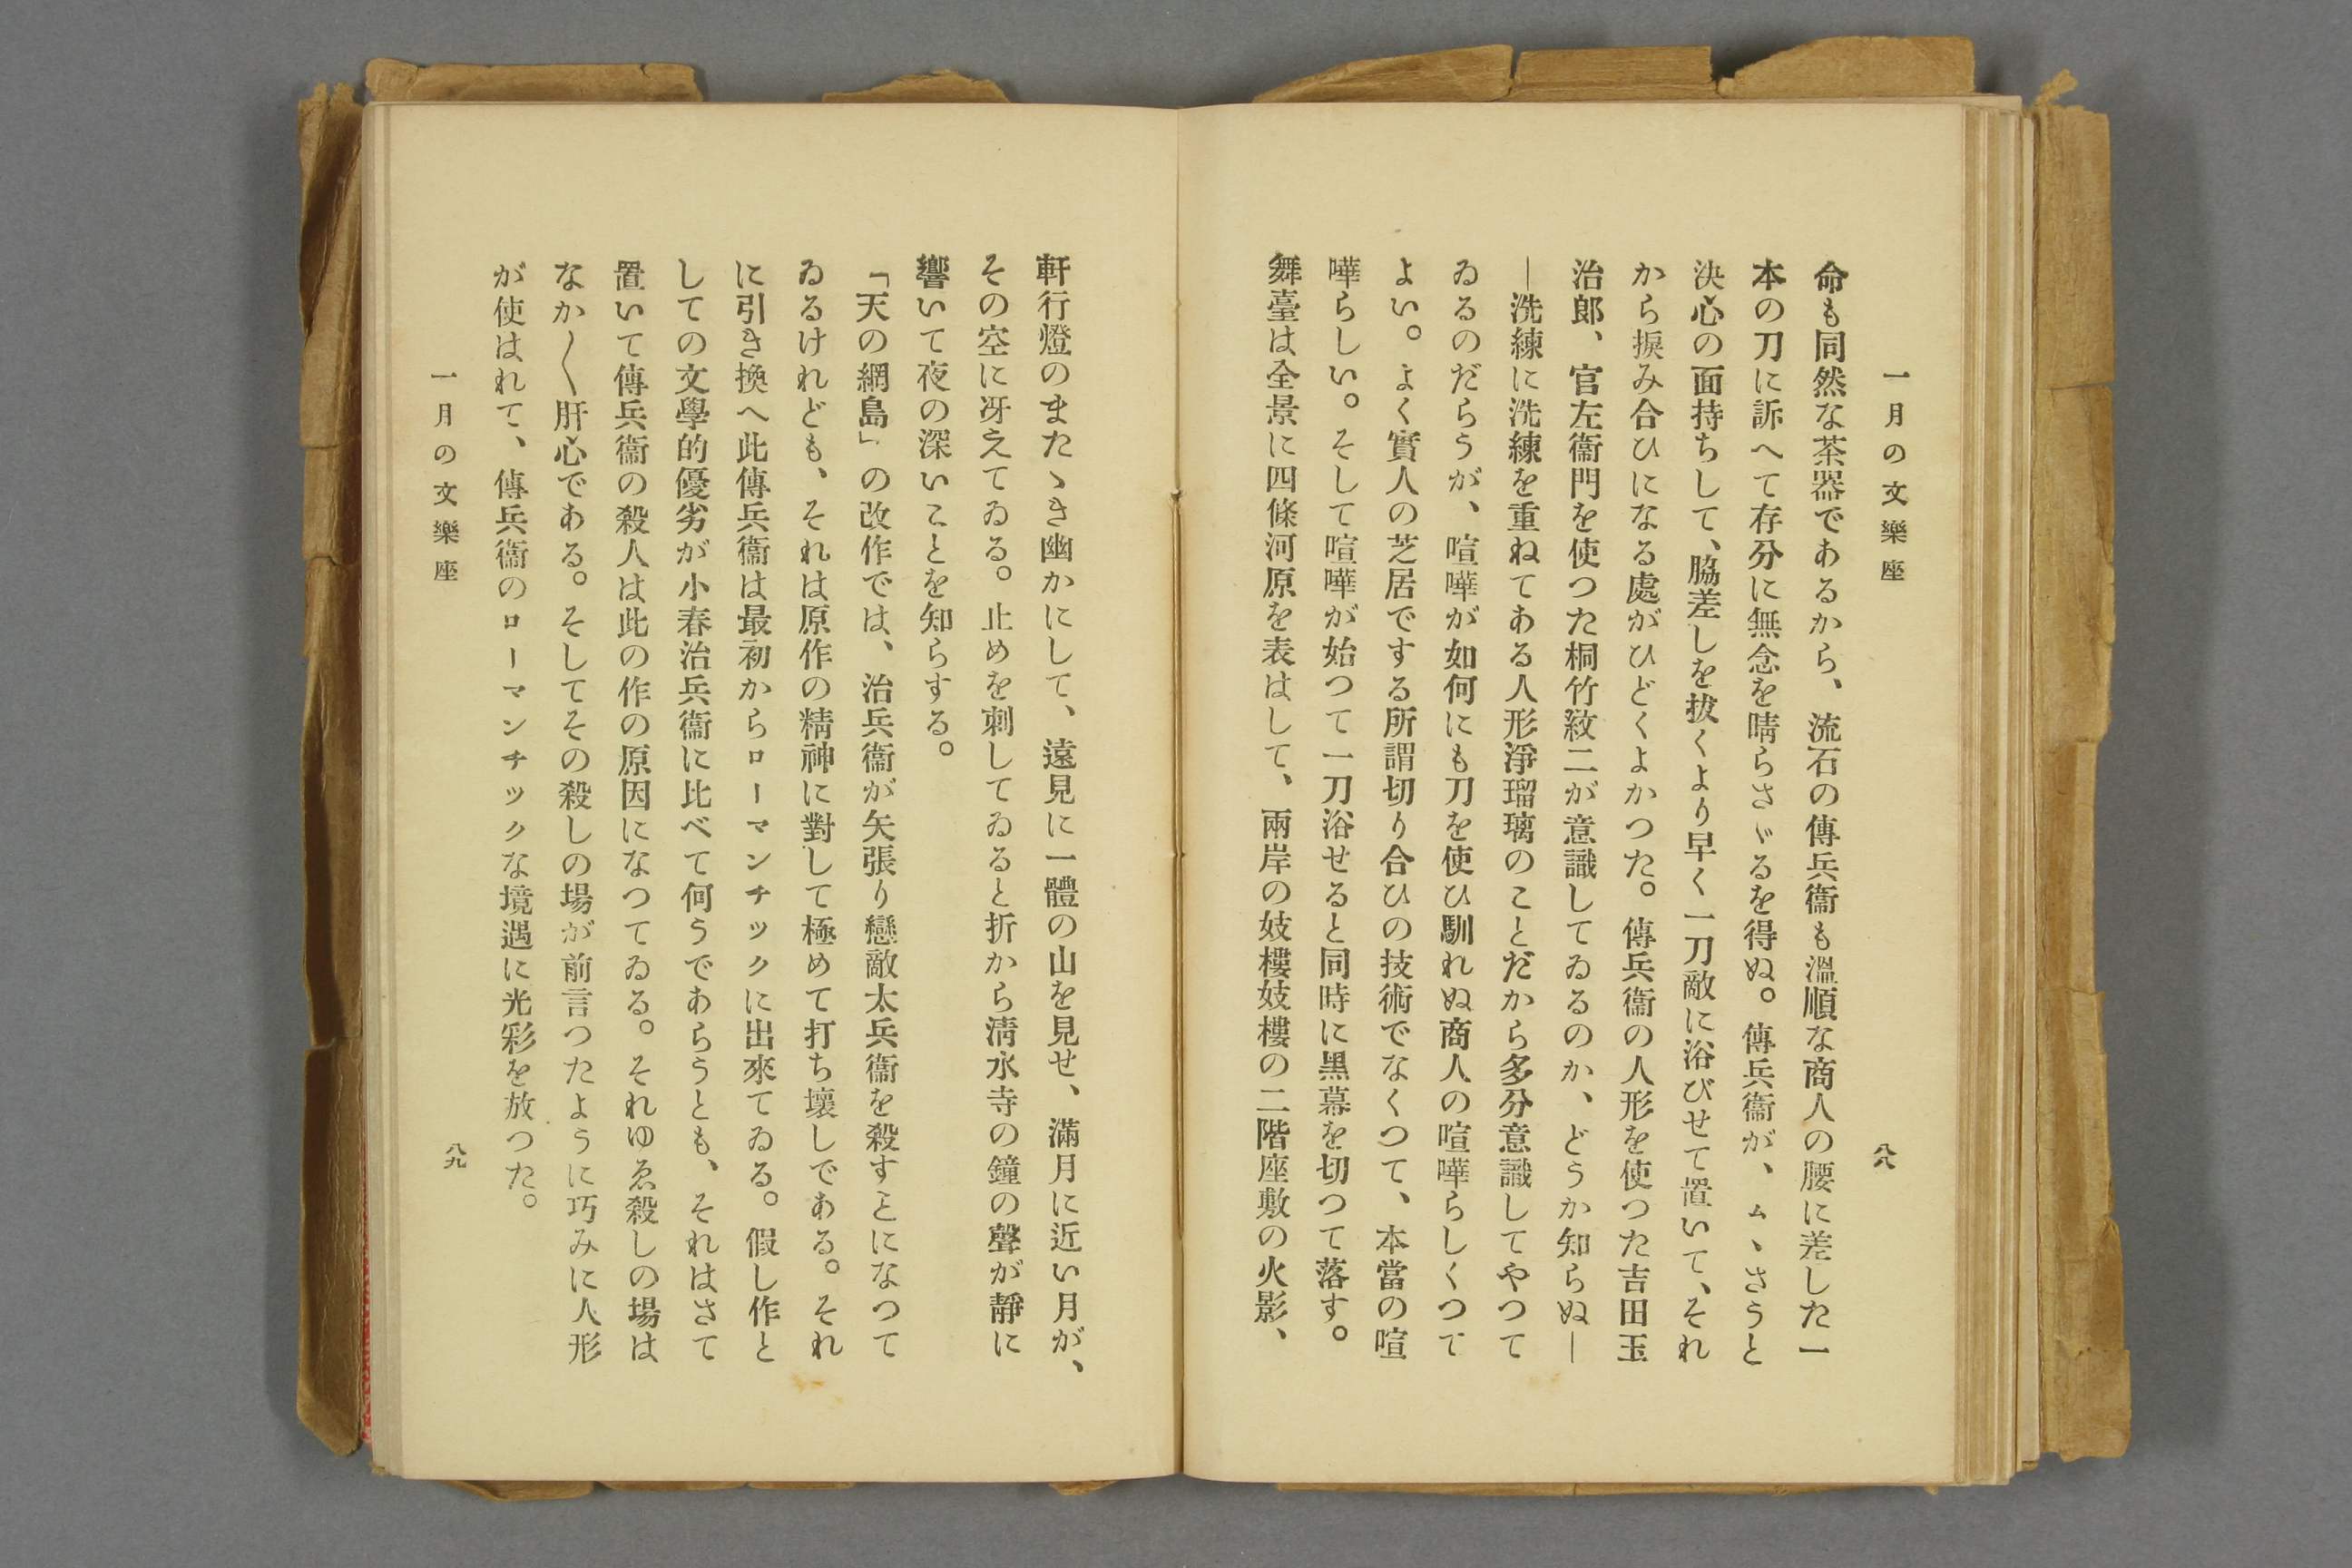 一月の文樂座
八八
命も同然な茶器であるから、流石の傳兵衞も溫順な商人の腰に差した一
本の刀に訴へて存分に無念を晴らさゞるを得ぬ。傳兵衞が、ム、さうと
決心の面持ちして、脇差しを拔くより早く一刀敵に浴びせて置いて、それ
から捩み合ひになる處がひどくよかつた。傳兵衞の人形を使つた吉田玉
治郎、官左衞門を使つた桐竹紋二が意識してゐるのか、どうか知らぬ―
―洗練に洗練を重ねてある人形淨瑠璃のことだから多分意識してやつて
ゐるのだらうが、喧嘩が如何にも刀を使ひ馴れぬ商人の喧嘩らしくつて
よい。よく實人の芝居でする所謂切り合ひの技術でなくつて、本當の喧
嘩らしい。そして喧嘩が始つて一刀浴せると同時に黑幕を切つて落す。
舞臺は全景に四條河原を表はして、兩岸の妓樓妓樓の二階座敷の火影、
軒行燈のまたゝき幽かにして、遠見に一體の山を見せ、滿月に近い月が、
その空に冴えてゐる。止めを刺してゐると折から淸水寺の鐘の聲が靜に
響いて夜の深いことを知らする。
「天の網島」の改作では、治兵衞が矢張り戀敵太兵衞を殺すとになつて
ゐるけれども、それは原作の精神に對して極めて打ち壞しである。それ
に引き換へ此傳兵衞は最初からローマンチックに出來てゐる。假し作と
しての文學的優劣が小春治兵衞に比べて何うであらうとも、それはさて
置いて傳兵衞の殺人は此の作の原因になつてゐる。それゆゑ殺しの場は
なか〳〵肝心である。そしてその殺しの場が前言つたように巧みに人形
が使はれて、傳兵衞のローマンチックな境遇に光彩を放つた。
一月の文樂座
八九